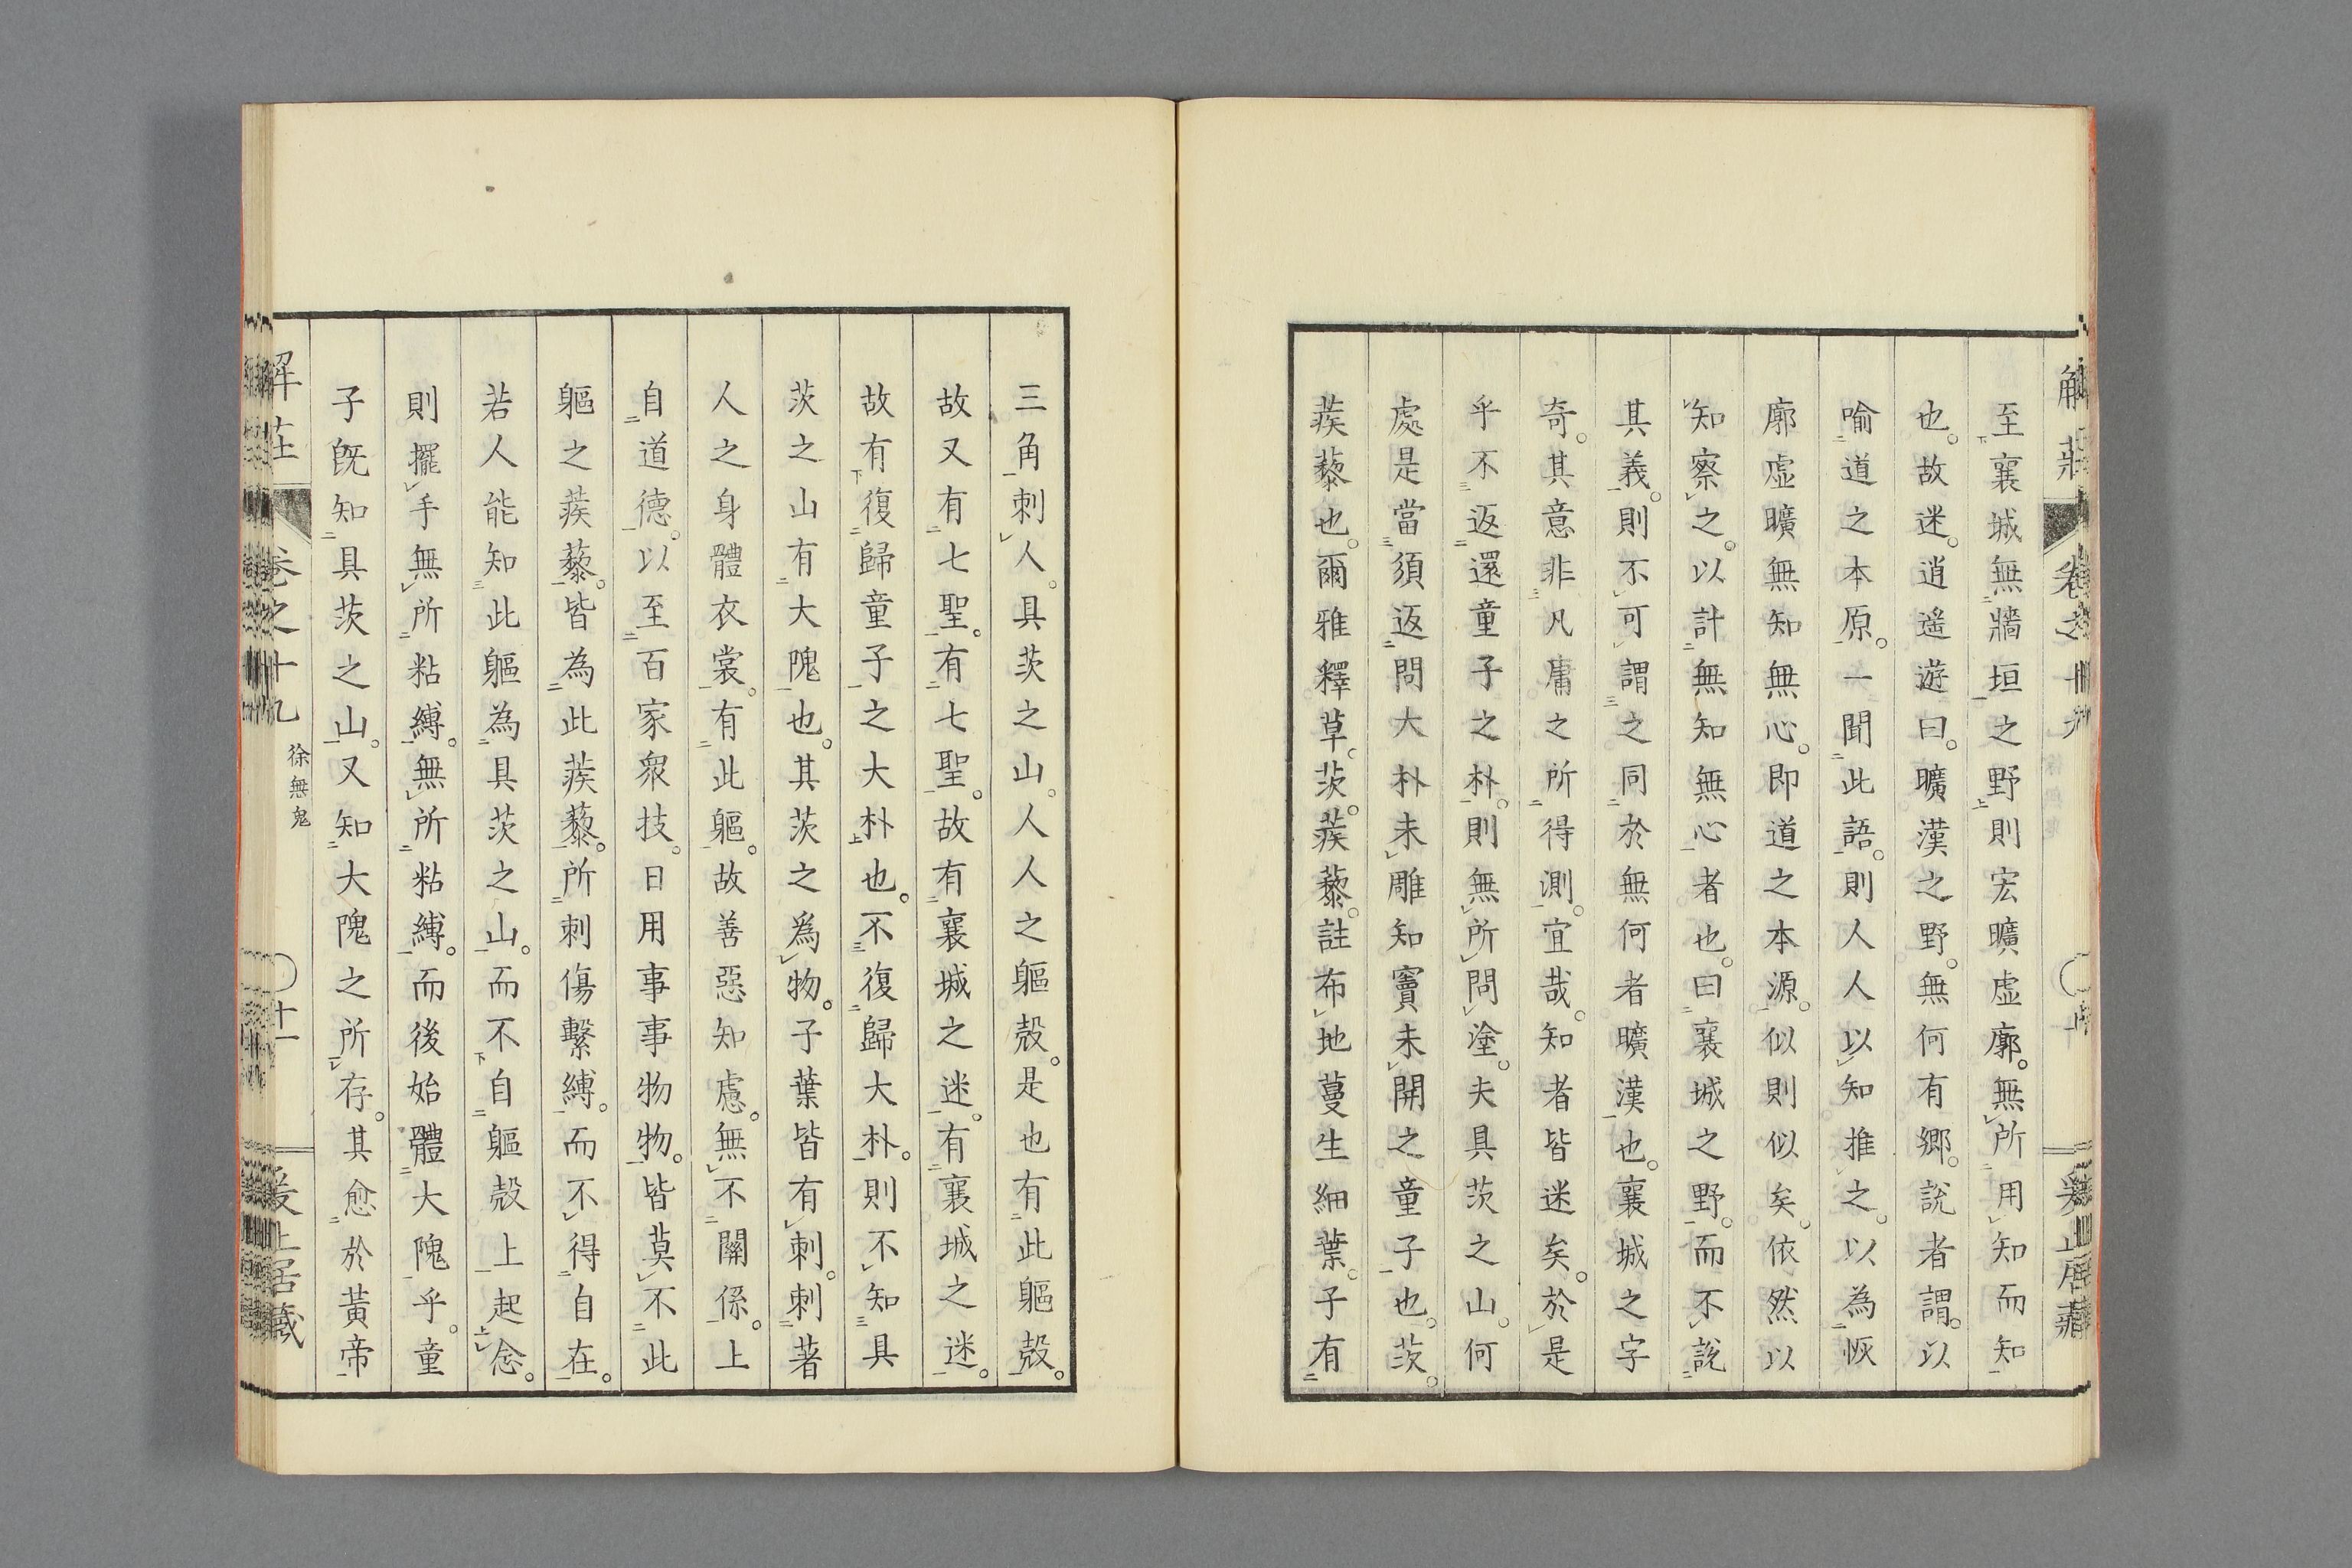 至襄城無牆垣之野則宏曠虛廓。無所用知而知
也。故迷。逍遙遊曰。曠漠之野。無何有郷。說者謂。以
喻道之本原。一聞此語。則人人以知推之。以為恢
廓虛曠無知無心。即道之本源。似則似矣。依然以
知察之。以計無知無心者也。曰襄城之野。而不說
其義。則不可謂之同於無何者曠漠也。襄城之字
奇。其意非凡庸之所得測。宜哉。知者皆迷矣。於是
乎不返還童子之朴。則無所問塗。夫具茨之山。何
處是當須返問大朴未雕知竇未開之童子也。茨。
蒺藜也。爾雅釋草。茨。蒺藜。註布地蔓生細葉。子有
三角刺人。具茨之山。人人之軀殼。是也有此軀殼。
故又有七聖。有七聖。故有襄城之迷。有襄城之迷。
故有復歸童子之大朴也。不復歸大朴。則不知具
茨之山有大隗也。其茨之爲物。子葉皆有刺。刺著
人之身體衣裳。有此軀。故善惡知慮。無不關係。上
自道德。以至百家衆技。日用事事物物。皆莫不此
軀之蒺藜。皆為此蒺藜。所刺傷繫縛。而不得自在。
若人能知此軀為具茨之山。而不自軀殼上起念。
則擺手無所粘縛。無所粘縛。而後始體大隗乎。童
子既知具茨之山。又知大隗之所存。其愈於黃帝
徐無鬼